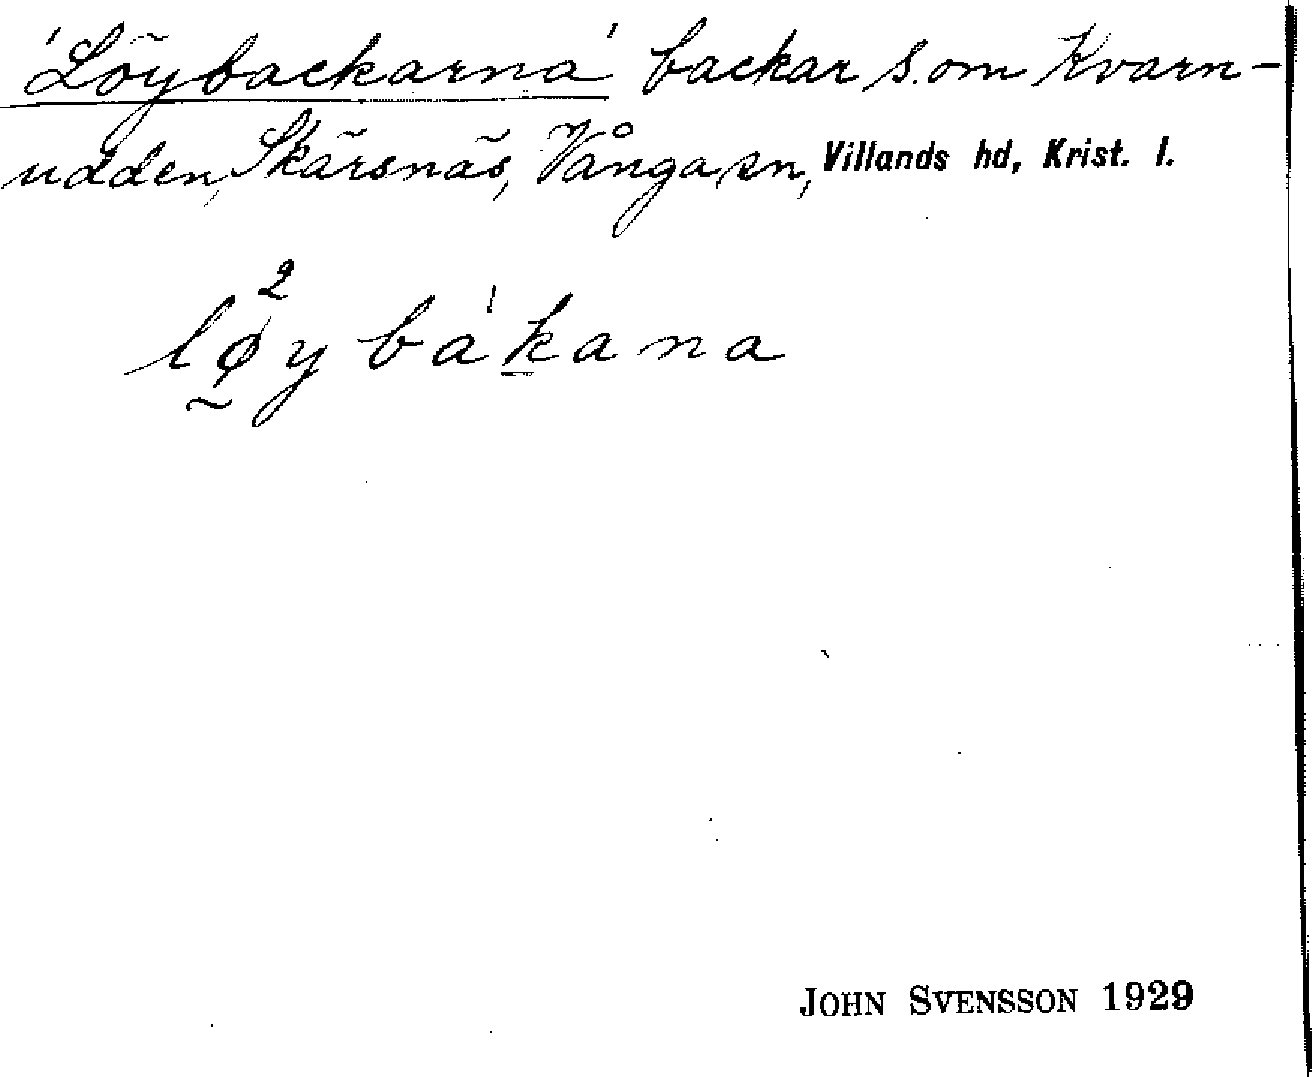 'Löybackarna' backar s. om Kvarn-
udden, Skärsnäs, Vånga sn, Villands hd, Krist. l.
lø²yba'kana
JOHN SVENSSON 1929